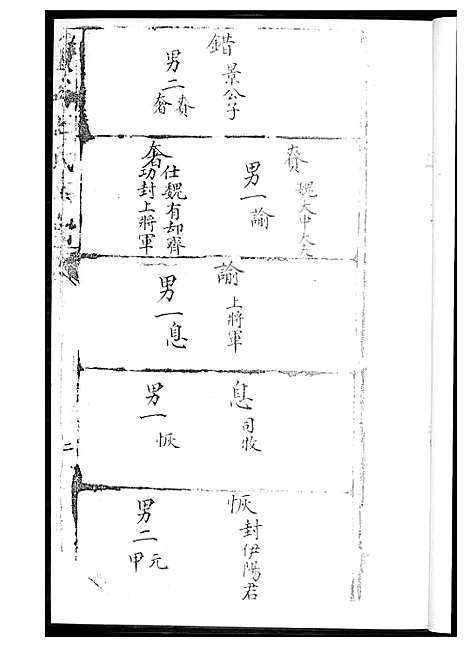 錯 景公子
男二 賁 奢
賁 魏大中大夫
男一 諭
奢 仕魏有却齊功封上將軍
諭 上將軍
男一 息
息 司牧
男一 恢
恢 封伊陽君
男二 元 甲
氏
二